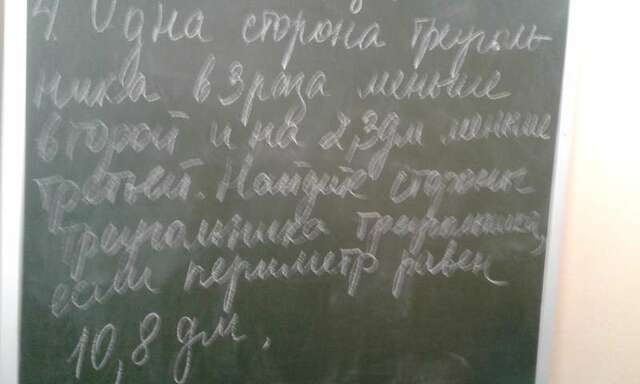 4. Одна сторона треуголь-
ника в 3 раза меньше
второй и на 2,3 дм меньше
третьей. Найдите стороны
треугольника треугольника,
если периметр равен
10,8 дм.